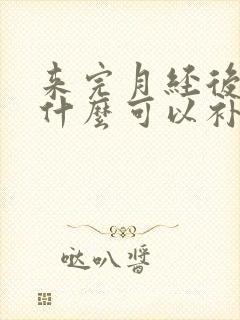 来完月经後
什麼可以补
哒叭醬